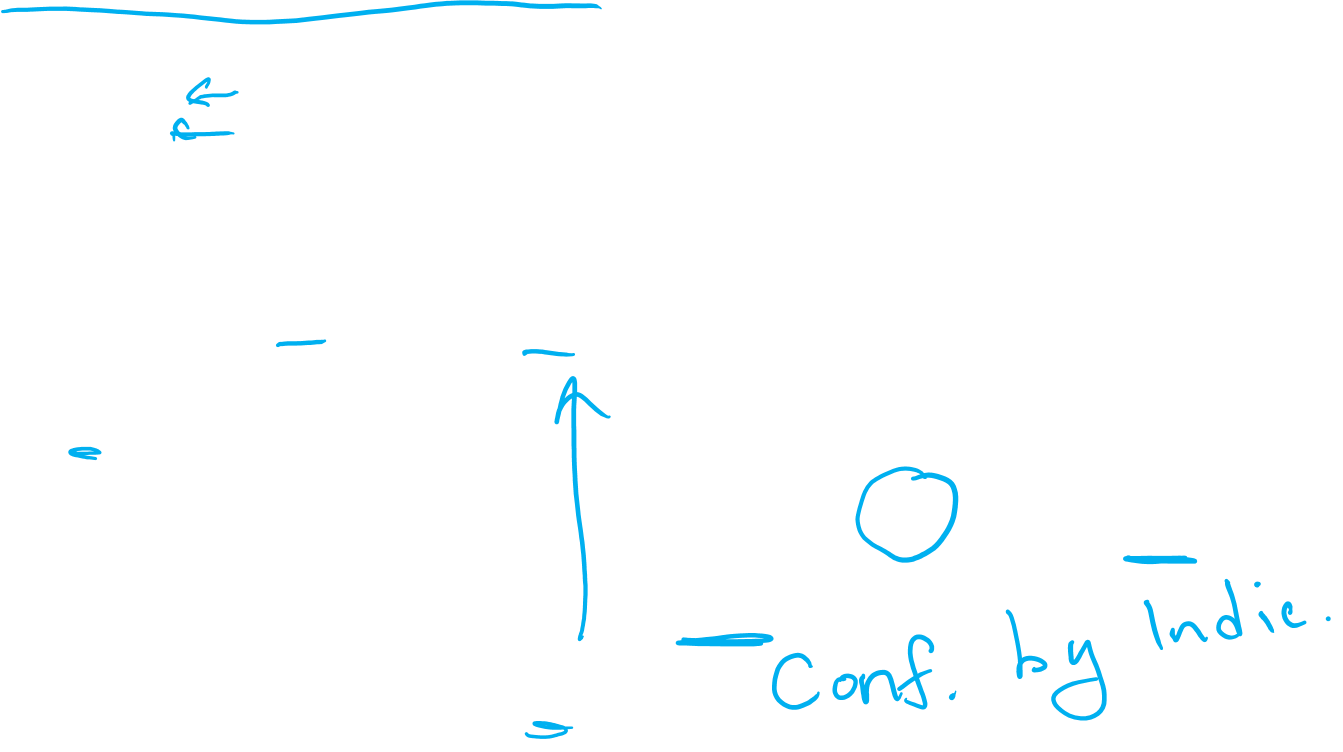 Conf. by Indic.